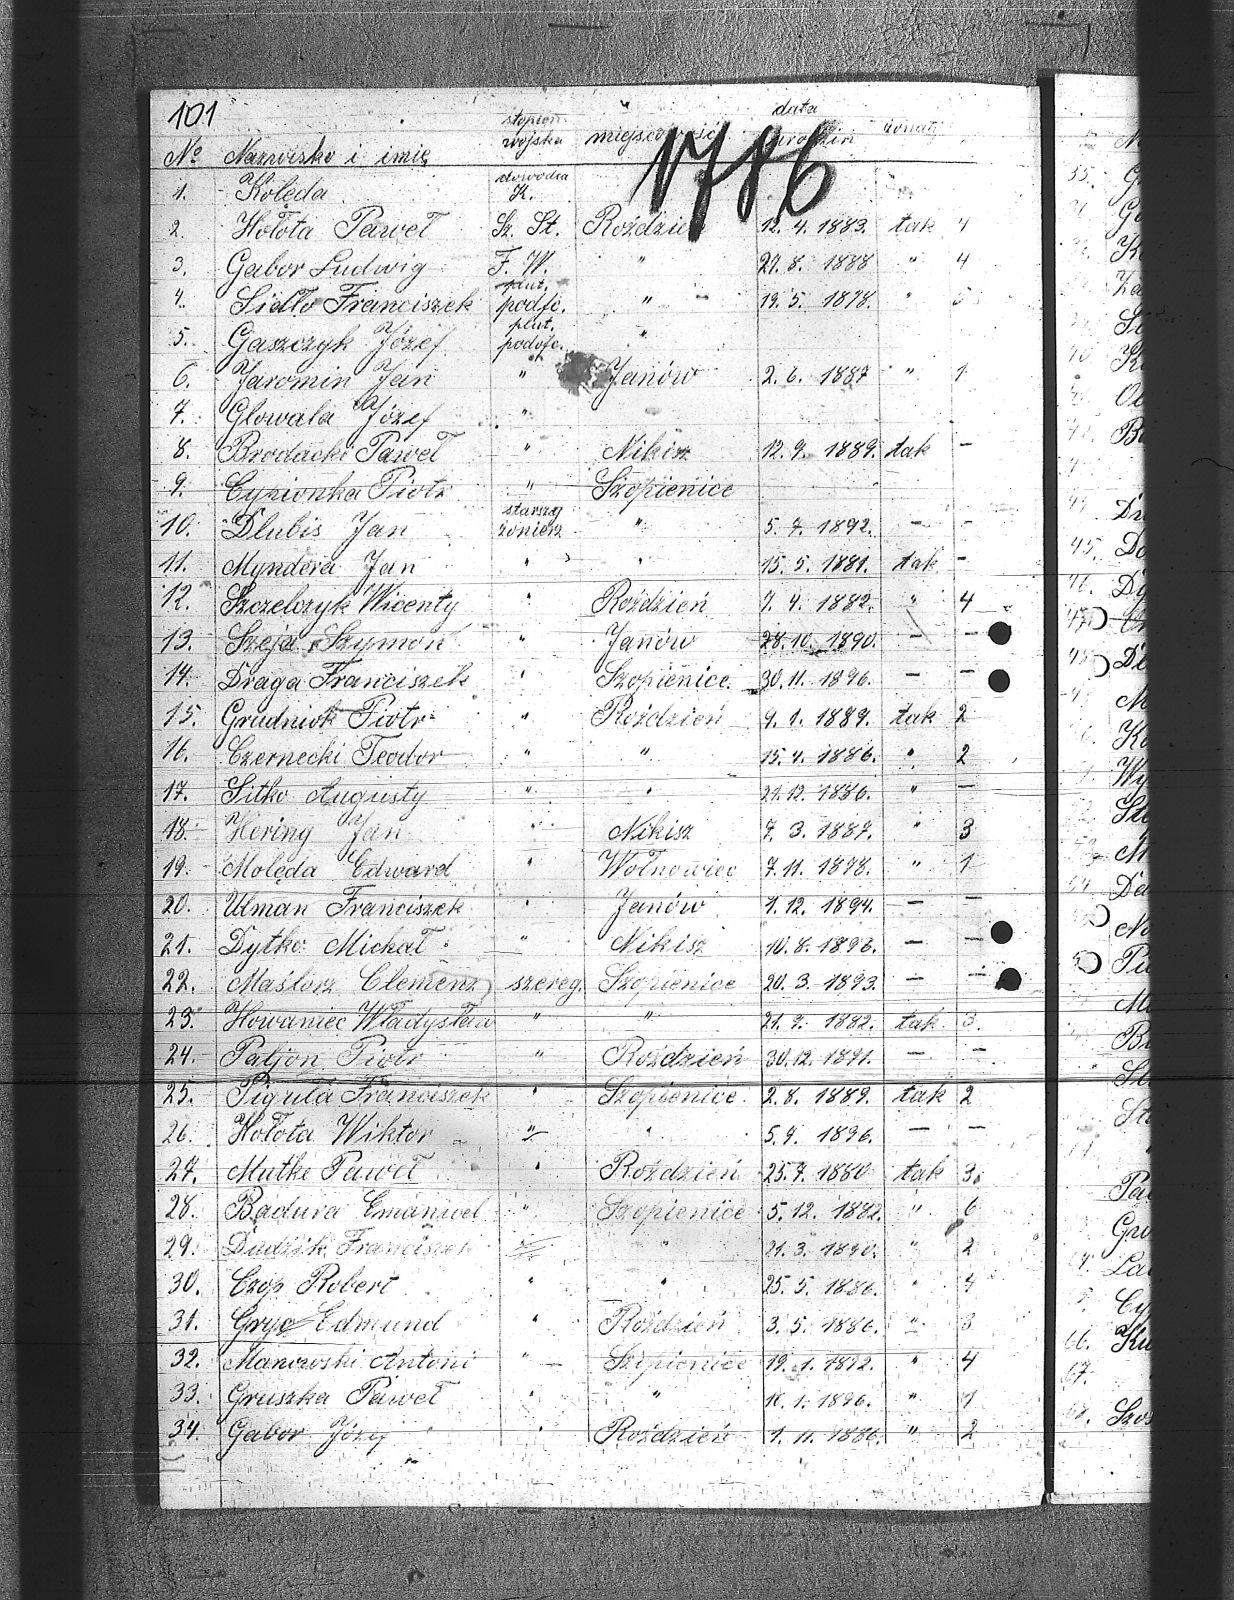 101
1786
№ Nazwisko i imię stopień wojska miejscowość data urodzin żonaty
1. Kolęda dowódca K.
2. Hołota Paweł Sz. St. Roździeń 12. 4. 1883. tak 4
3. Gabor Ludwig F. W. " 27. 8. 1888 " 4
4. Sidło Franciszek plut. podofc. " 19. 5. 1878. "
5. Gaszczyk Józef plut. podofc. "
6. Jaromin Jan " Janów 2. 6. 1887 " 1
7. Glowala Józef "
8. Brodacki Paweł " Nikisz 12. 9. 1889. tak –
9. Cyzionka Piotr " Szopienice
10. Dlubis Jan starszy żołnierz " 5. 7. 1892. – –
11. Myndera Jan " " 15. 5. 1881. tak –
12. Szczelczyk Wicenty " Roździeń 7. 4. 1882. " 4
13. Szeja Szymon " Janów 28. 10. 1890. – –
14. Draga Franciszek " Szopienice. 30. 11. 1896. – –
15. Grudniok Piotr " Roździeń 9. 1. 1889. tak 2
16. Czernecki Teodor " " 15. 4. 1886. " 2
17. Sitko Augusty " " 21. 12. 1886. " –
18. Hering Jan " Nikisz 7. 3. 1887. " 3
19. Molęda Edward " Wołnowiec 7. 11. 1898. " 1
20. Ulman Franciszek " Janów 1. 12. 1894. – –
21. Dytko Michał " Nikisz 10. 8. 1896. – –
22. Maślorz Clemenz szereg. Szopienice 20. 3. 1893. – –
23. Howaniec Władysław " " 21. 9. 1882. tak 3.
24. Paljon Piotr " Roździeń 30. 12. 1891. – –
25. Piguła Franciszek " Szopienice. 2. 8. 1889. tak 2
26. Hołota Wiktor " " 5. 9. 1896. – –
27. Mutke Paweł " Roździeń 25. 7. 1880 tak 3.
28. Badura Emanuel " Szopienice 5. 12. 1882. " 6
29. Dudzik Franciszek " " 21. 3. 1890. " 2
30. Czop Robert " " 25. 5. 1886. " 4
31. Gryc Edmund " Roździeń 3. 5. 1886. " 3
32. Manowski Antoni " Szopienice 19. 1. 1892. " 4
33. Gruszka Paweł " " 18. 1. 1896. " 1
34. Gabor Józef " Roździeń 1. 11. 1886. " 2